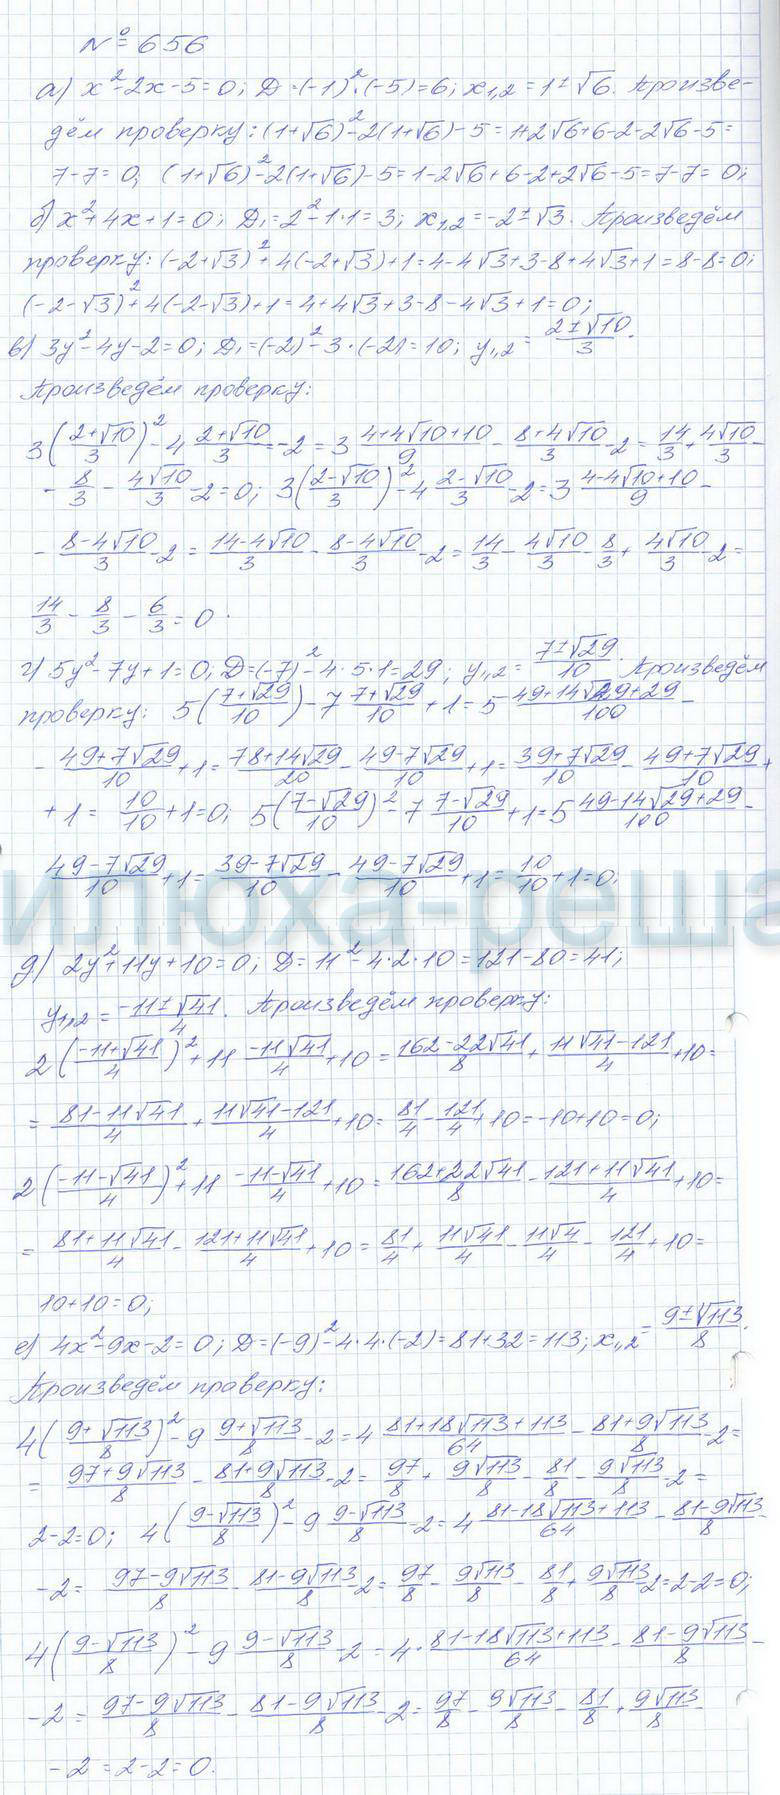 № 656
а) x²-2x-5=0; D=(-1)²·(-5)=6; x₁,₂=1±√6. Произве-
дём проверку: (1+√6)²-2(1+√6)-5=1+2√6+6-2-2√6-5=
7-7=0; (1+√6)²-2(1+√6)-5=1-2√6+6-2+2√6-5=7-7=0;
б) x²+4x+1=0; D₁=2²-1·1=3; x₁,₂=-2±√3. Произведём
проверку: (-2+√3)²+4(-2+√3)+1=4-4√3+3-8+4√3+1=8-8=0;
(-2-√3)²+4(-2-√3)+1=4+4√3+3-8-4√3+1=0;
в) 3y²-4y-2=0; D₁=(-2)²-3·(-2)=10; y₁,₂=(2±√10)/3.
Произведём проверку:
3((2+√10)/3)²-4 (2+√10)/3-2=3 (4+4√10+10)/9-(8+4√10)/3-2=14/3+4√10/3-
-8/3-4√10/3-2=0; 3((2-√10)/3)²-4 (2-√10)/3-2=3 (4-4√10+10)/9-
-(8-4√10)/3-2=(14-4√10)/3-(8-4√10)/3-2=14/3-4√10/3-8/3+4√10/3-2=
14/3-8/3-6/3=0.
г) 5y²-7y+1=0; D=(-7)²-4·5·1=29; y₁,₂=(7±√29)/10. Произведём
проверку: 5((7+√29)/10)-7 (7+√29)/10+1=5 (49+14√29+29)/100-
-(49+7√29)/10+1=(78+14√29)/20-(49-7√29)/10+1=(39+7√29)/10-(49+7√29)/10+
+1=10/10+1=0; 5((7-√29)/10)²-7 (7-√29)/10+1=5 (49-14√29+29)/100-
(49-7√29)/10+1=(39-7√29)/10-(49-7√29)/10+1=10/10+1=0.
илюха-реша
д) 2y²+11y+10=0; D=11²-4·2·10=121-80=41;
y₁,₂=(-11±√41)/4. Произведём проверку:
2((-11+√41)/4)²+11 (-11√41)/4+10=(162-22√41)/8+(11√41-121)/4+10=
=(81-11√41)/4+(11√41-121)/4+10=81/4-121/4+10=-10+10=0;
2((-11-√41)/4)²+11 (-11-√41)/4+10=(162+22√41)/8-(121+11√41)/4+10=
=(81+11√41)/4-(121+11√41)/4+10=81/4+11√41/4-11√4/4-121/4+10=
10+10=0;
е) 4x²-9x-2=0; D=(-9)²-4·4·(-2)=81+32=113; x₁,₂=(9±√113)/8.
Произведём проверку:
4((9+√113)/8)²-9 (9+√113)/8-2=4 (81+18√113+113)/64-(81+9√113)/8-2=
=(97+9√113)/8-(81+9√113)/8-2=97/8+9√113/8-81/8-9√113/8-2=
2-2=0; 4((9-√113)/8)²-9 (9-√113)/8-2=4 (81-18√113+113)/64-(81-9√113)/8-
-2=(97-9√113)/8-(81-9√113)/8-2=97/8-9√113/8-81/8+9√113/8-2=2-2=0;
4((9-√113)/8)²-9 (9-√113)/8-2=4·(81-18√113+113)/64-(81-9√113)/8-
-2=(97-9√113)/8-(81-9√113)/8-2=97/8-9√113/8-81/8+9√113/8-
-2=2-2=0.